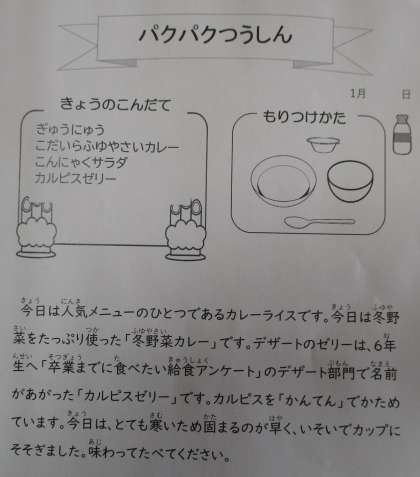 パクパクつうしん
1月　　日
きょうのこんだて
ぎゅうにゅう
こだいらふゆやさいカレー
こんにゃくサラダ
カルピスゼリー
もりつけかた
今日は人気メニューのひとつであるカレーライスです。今日は冬野
菜をたっぷり使った「冬野菜カレー」です。デザートのゼリーは、6年
生へ「卒業までに食べたい給食アンケート」のデザート部門で名前
があがった「カルピスゼリー」です。カルピスを「かんてん」でかため
ています。今日は、とても寒いため固まるのが早く、いそいでカップに
そそぎました。味わってたべてください。